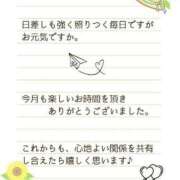 日差しも強く照りつく毎日ですが
お元気ですか。
今月も楽しいお時間を頂き
ありがとうございました。
これからも、心地よい関係を共有
し合えたら嬉しく思います♪